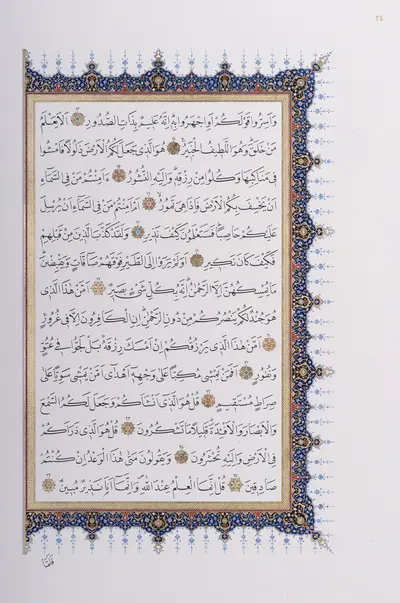 ٢٤
وَاَسِرُّوا قَوْلَكُمْ اَوِ اجْهَرُوا بِهِ اِنَّهُ عَلِيمٌ بِذَاتِ الصُّدُورِ اَلَا يَعْلَمُ
مَنْ خَلَقَ وَهُوَ اللَّطِيفُ الْخَبِيرُ هُوَ الَّذِي جَعَلَ لَكُمُ الْاَرْضَ ذَلُولًا فَامْشُوا
فِي مَنَاكِبِهَا وَكُلُوا مِنْ رِزْقِهِ وَاِلَيْهِ النُّشُورُ ءَاَمِنْتُمْ مَنْ فِي السَّمَاءِ
اَنْ يَخْسِفَ بِكُمُ الْاَرْضَ فَاِذَا هِيَ تَمُورُ اَمْ اَمِنْتُمْ مَنْ فِي السَّمَاءِ اَنْ يُرْسِلَ
عَلَيْكُمْ حَاصِبًا فَسَتَعْلَمُونَ كَيْفَ نَذِيرِ وَلَقَدْ كَذَّبَ الَّذِينَ مِنْ قَبْلِهِمْ
فَكَيْفَ كَانَ نَكِيرِ اَوَلَمْ يَرَوْا اِلَى الطَّيْرِ فَوْقَهُمْ صَافَّاتٍ وَيَقْبِضْنَ
مَا يُمْسِكُهُنَّ اِلَّا الرَّحْمٰنُ اِنَّهُ بِكُلِّ شَيْءٍ بَصِيرٌ اَمَّنْ هٰذَا الَّذِي
هُوَ جُنْدٌ لَكُمْ يَنْصُرُكُمْ مِنْ دُونِ الرَّحْمٰنِ اِنِ الْكَافِرُونَ اِلَّا فِي غُرُورٍ
اَمَّنْ هٰذَا الَّذِي يَرْزُقُكُمْ اِنْ اَمْسَكَ رِزْقَهُ بَلْ لَجُّوا فِي عُتُوٍّ
وَنُفُورٍ اَفَمَنْ يَمْشِي مُكِبًّا عَلَى وَجْهِهِ اَهْدَى اَمَّنْ يَمْشِي سَوِيًّا عَلَى
صِرَاطٍ مُسْتَقِيمٍ قُلْ هُوَ الَّذِي اَنْشَاَكُمْ وَجَعَلَ لَكُمُ السَّمْعَ
وَالْاَبْصَارَ وَالْاَفْئِدَةَ قَلِيلًا مَا تَشْكُرُونَ قُلْ هُوَ الَّذِي ذَرَاَكُمْ
فِي الْاَرْضِ وَاِلَيْهِ تُحْشَرُونَ وَيَقُولُونَ مَتَى هٰذَا الْوَعْدُ اِنْ كُنْتُمْ
صَادِقِينَ قُلْ اِنَّمَا الْعِلْمُ عِنْدَ اللّٰهِ وَاِنَّمَا اَنَا نَذِيرٌ مُبِينٌ
فَلَمَّا